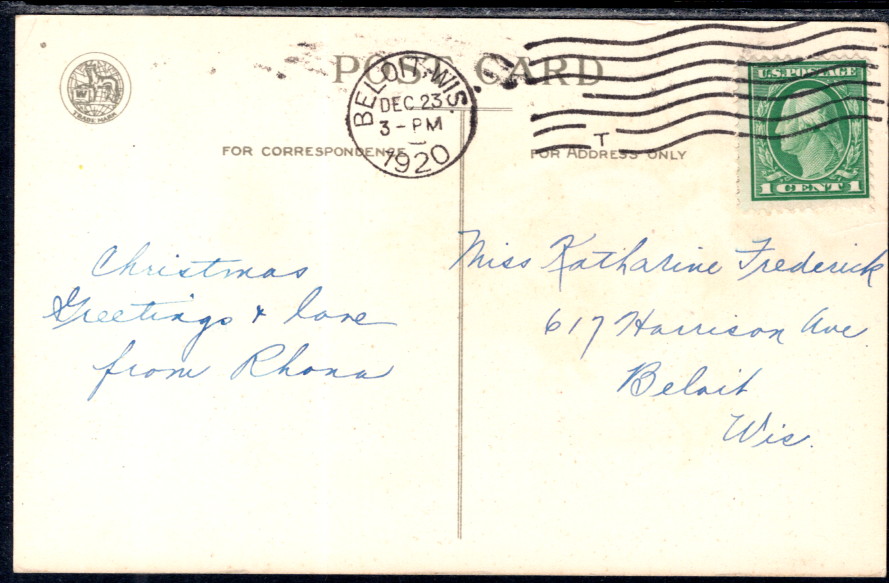 POST CARD
BELOIT, WIS.
DEC 23
3-PM
1920
T
U.S. POSTAGE
1 CENT 1
TRADE MARK
FOR CORRESPONDENCE
FOR ADDRESS ONLY
Christmas
Greetings & love
from Rhona
Miss Katharine Frederick
617 Harrison Ave.
Beloit
Wis.